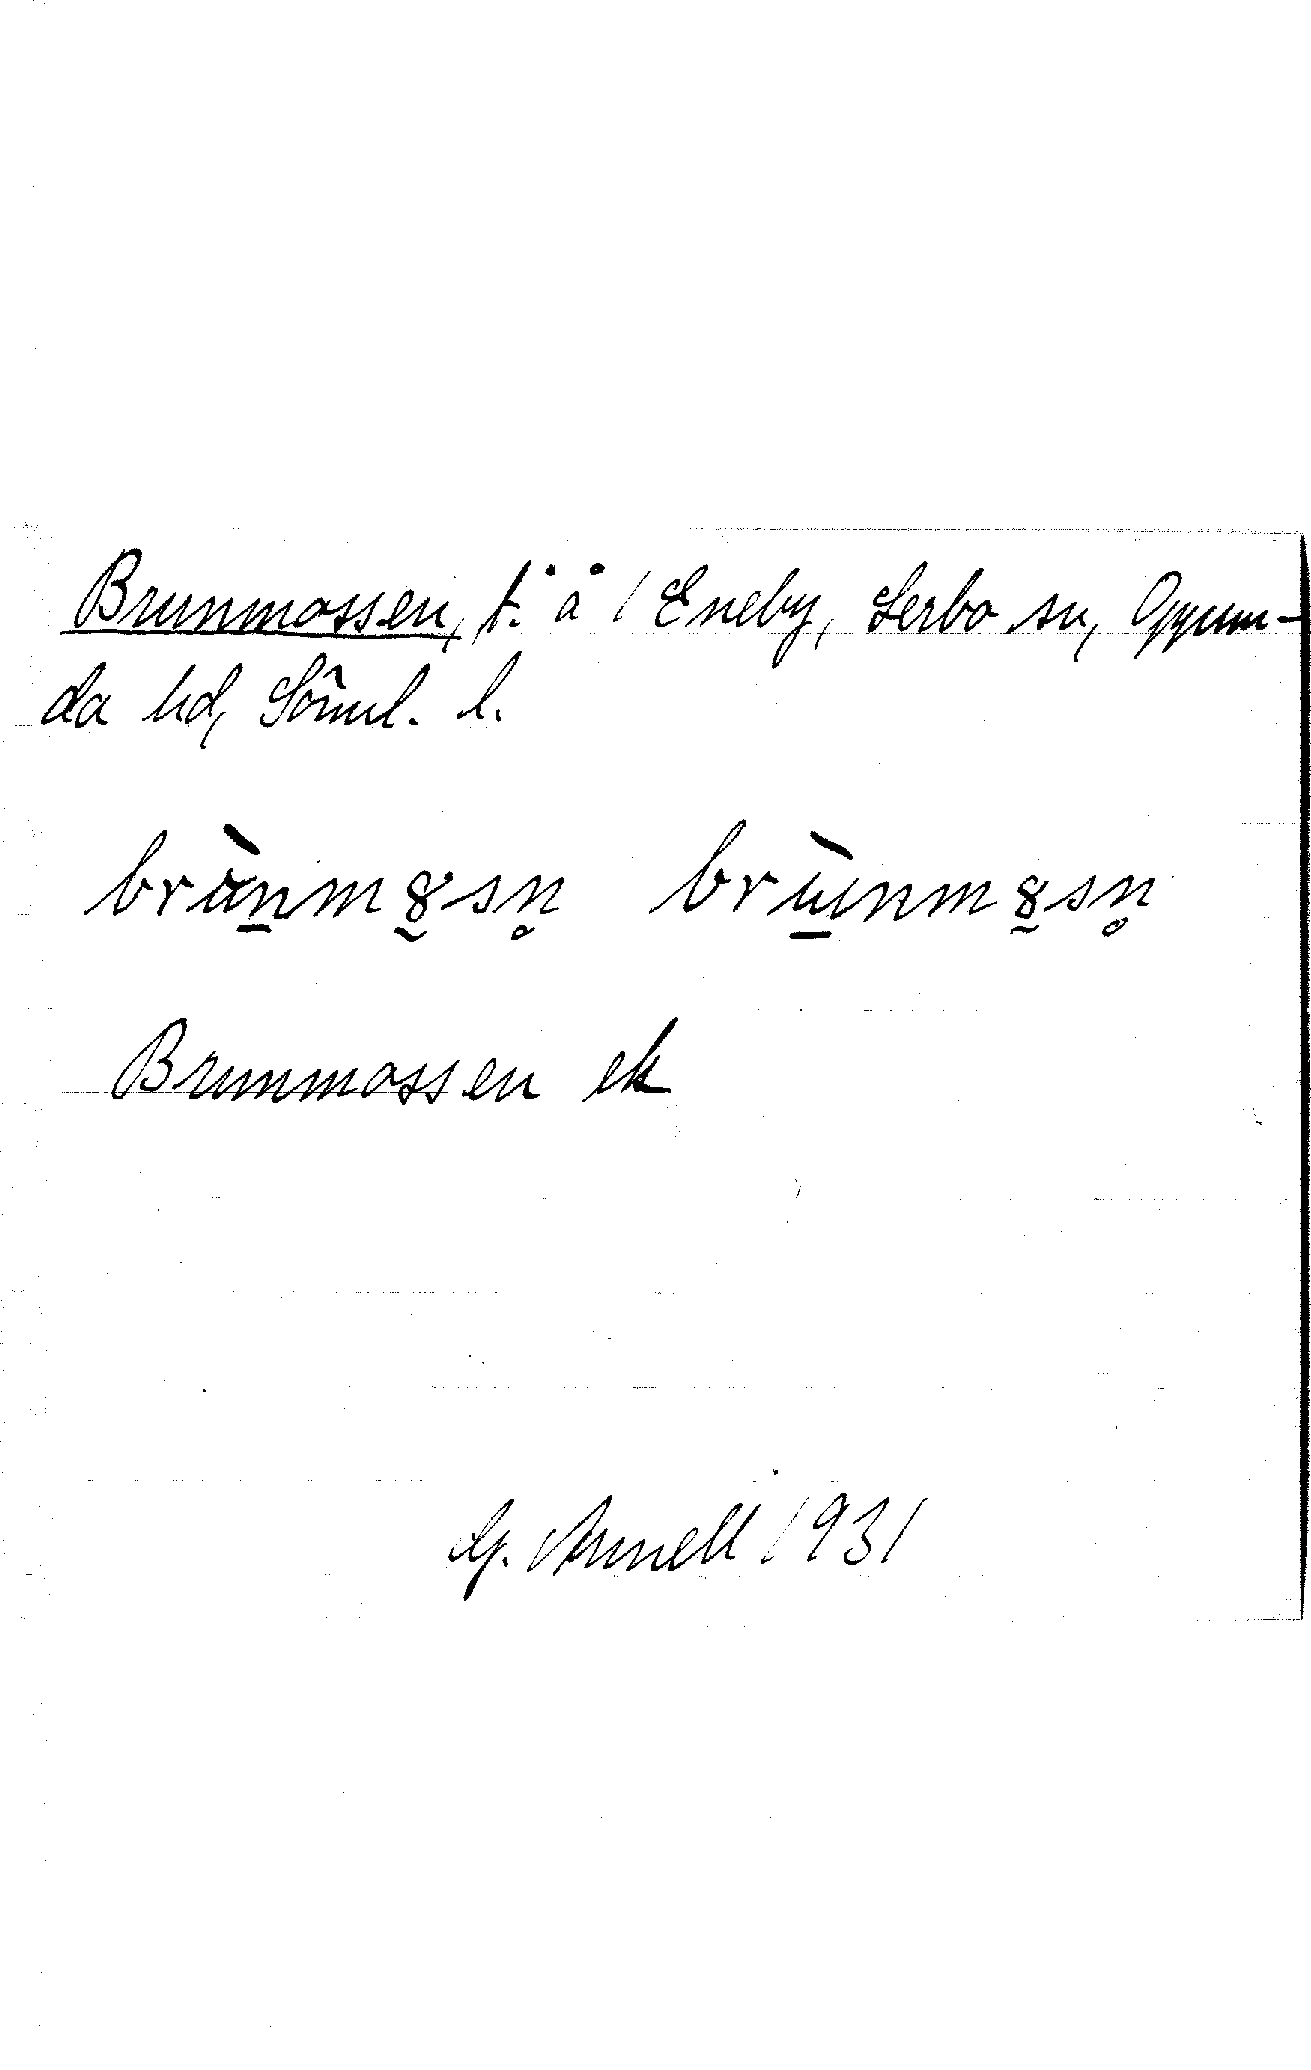 Brunmossen, t. å 1 Eneby, Lerbo sn, Oppun-
da hd, Söml. l.
brùnmȣsn̥ brùnmȣsn̥
Brunmossen ek
G. Arnell 1931